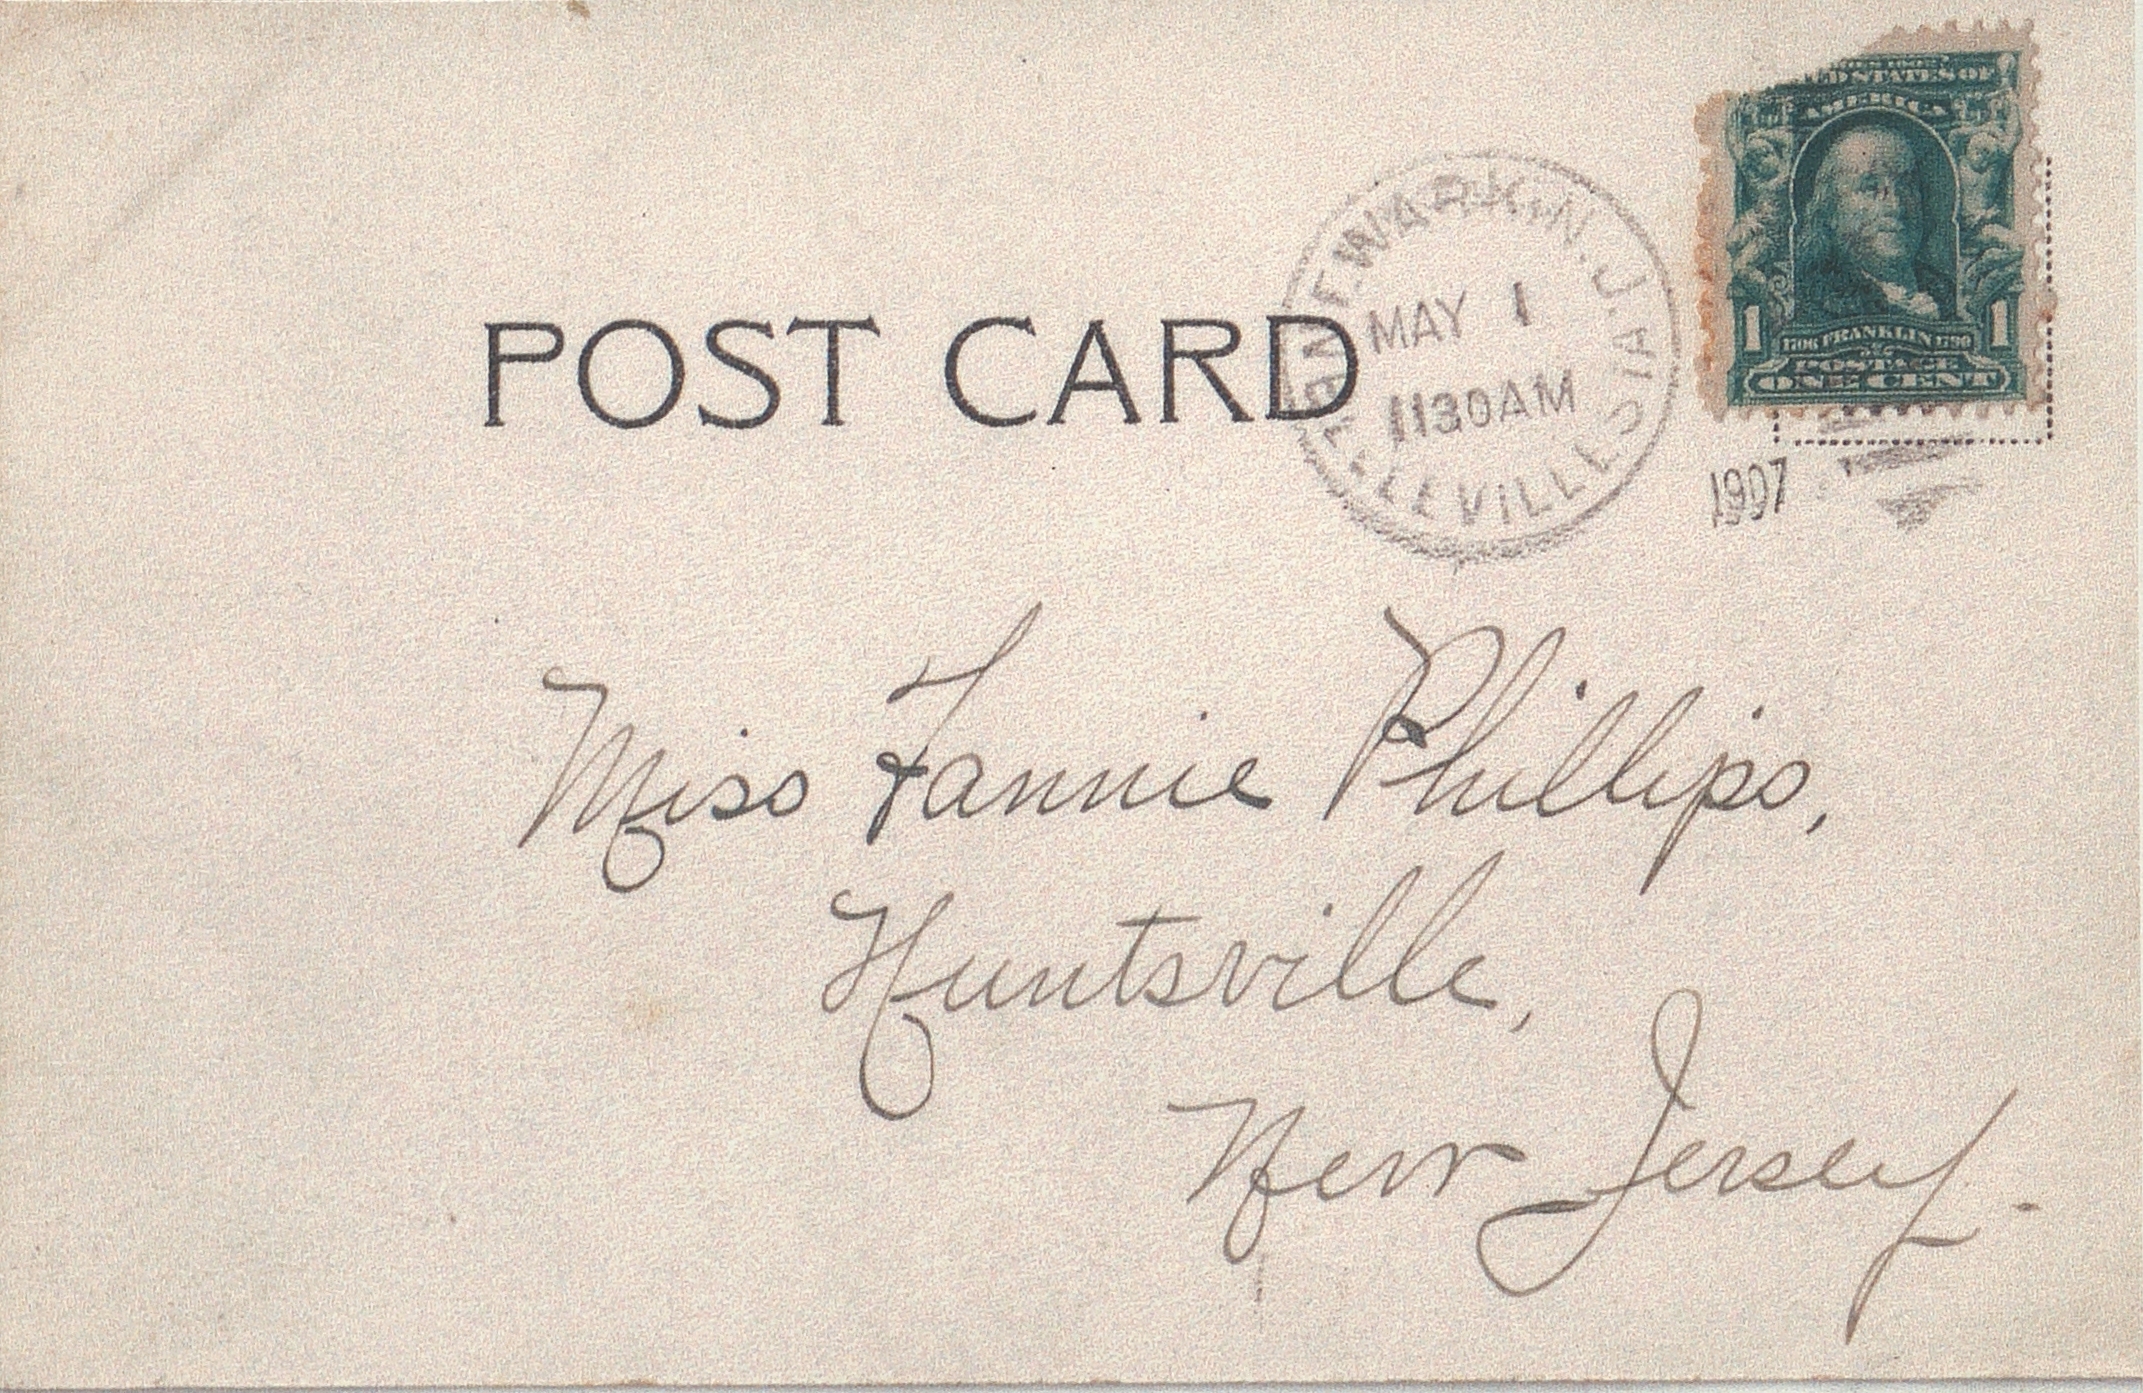 UNITED STATES OF
AMERICA
1 1706 FRANKLIN 1790 1
POSTAGE
ONE CENT
NEWARK, N.J.
MAY 1
1130 AM
1907
POST CARD
Miss Fannie Phillips,
Huntsville,
New Jersey.